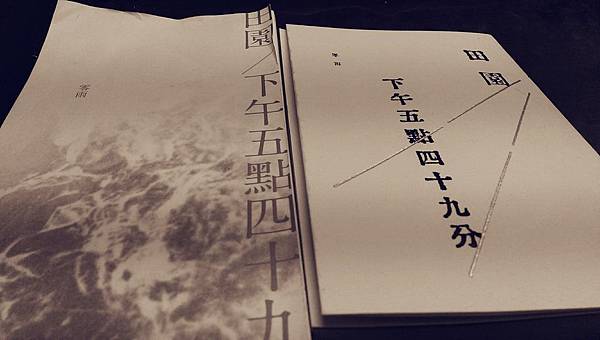 田園／下午五點四十九
零雨
田園
下午五點四十九分
零雨